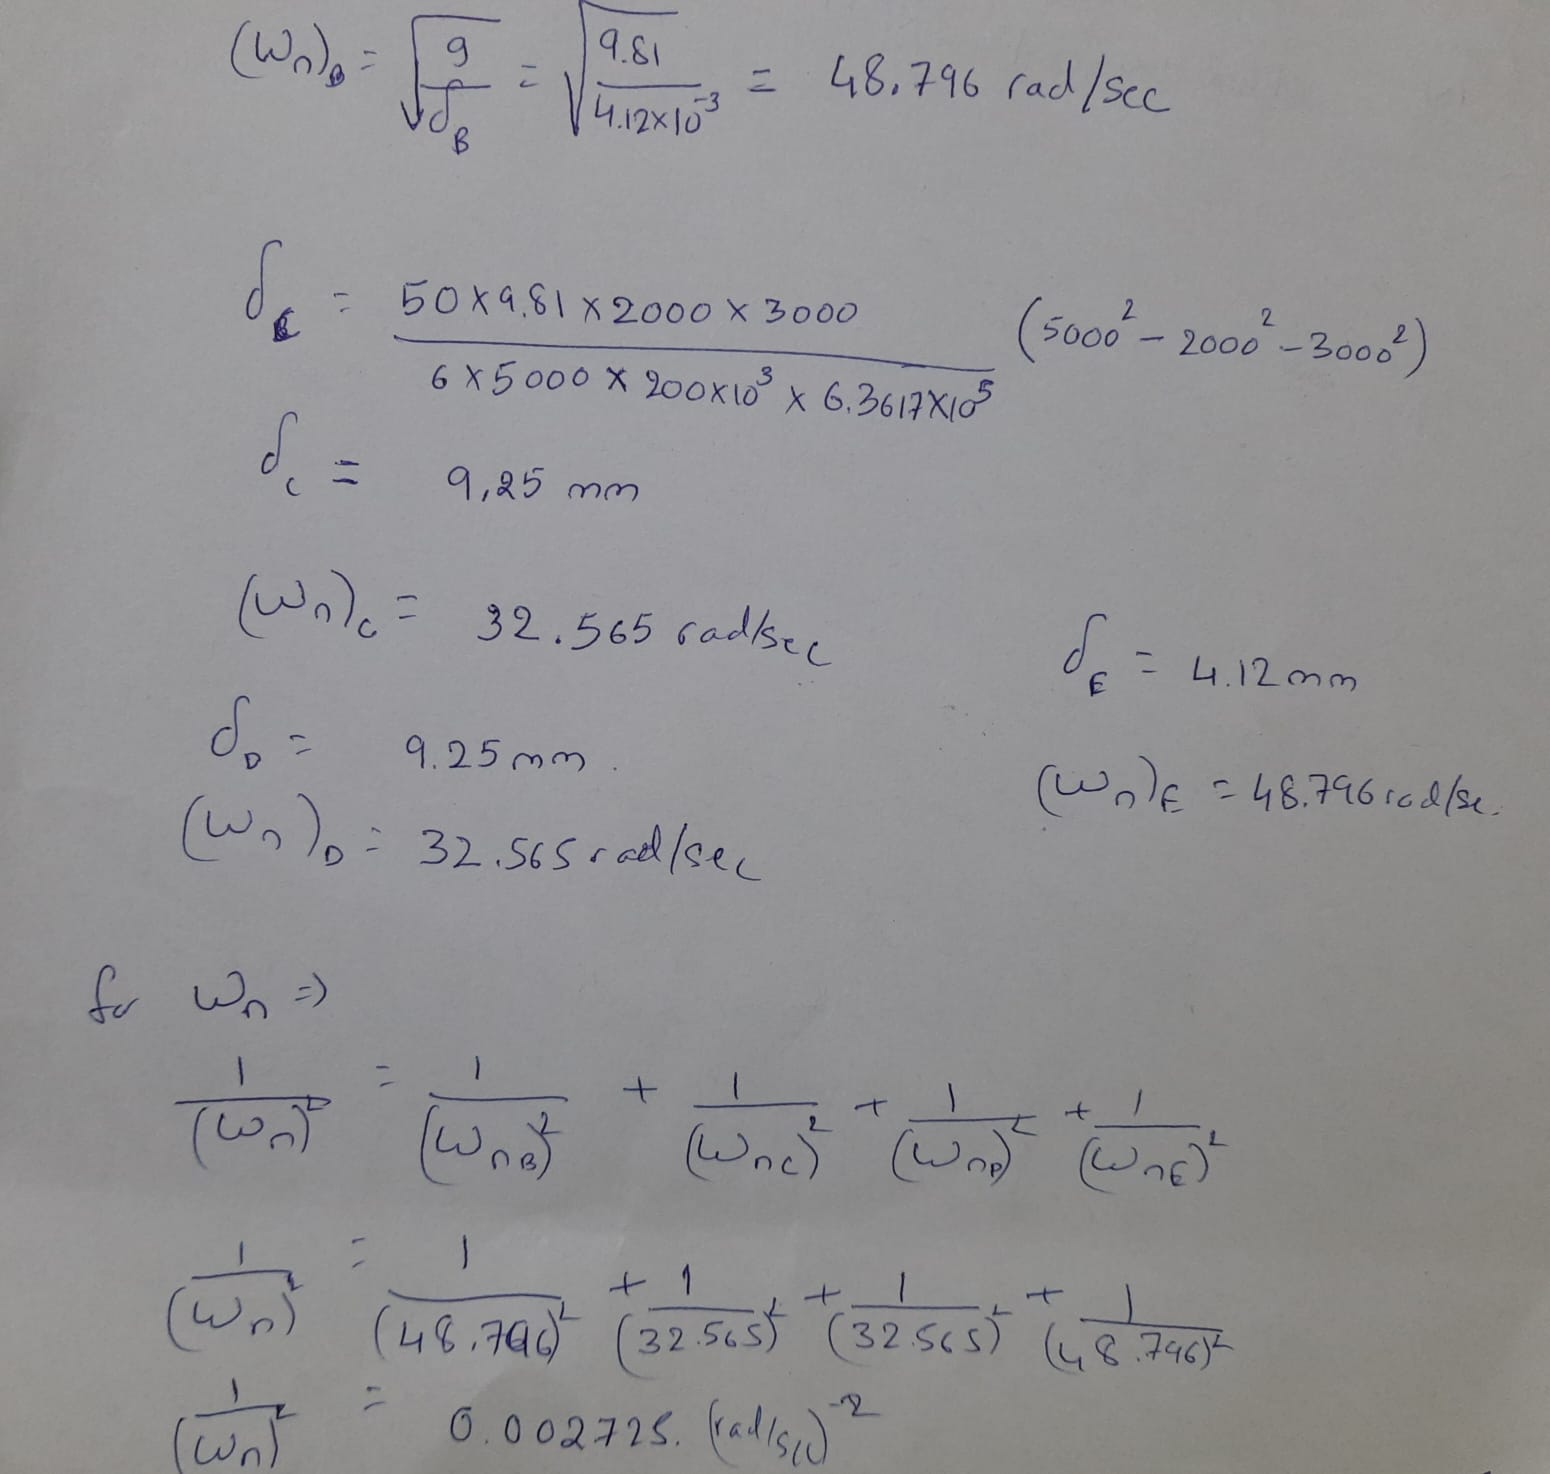 (ωn)B = √(g/δB) = √(9.81/4.12×10⁻³) = 48.796 rad/sec
δC = (50×9.81×2000×3000)/(6×5000×200×10³×6.3617×10⁵) (5000² - 2000² - 3000²)
δC = 9.25 mm
(ωn)C = 32.565 rad/sec
δE = 4.12 mm
δD = 9.25 mm.
(ωn)E = 48.796 rad/se.
(ωn)D = 32.565 rad/sec
for ωn ⇒
1/(ωn)² = 1/(ωnB)² + 1/(ωnC)² + 1/(ωnD)² + 1/(ωnE)²
1/(ωn)² = 1/(48.796)² + 1/(32.565)² + 1/(32.565)² + 1/(48.796)²
1/(ωn)² = 0.002725. (rad/sec)⁻²